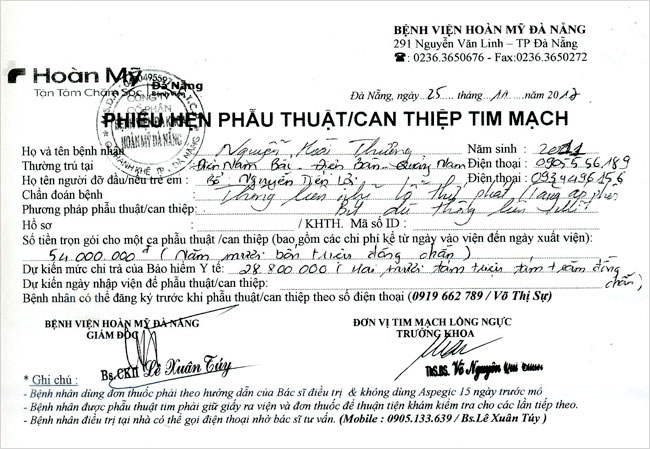 BỆNH VIỆN HOÀN MỸ ĐÀ NẴNG
291 Nguyễn Văn Linh – TP Đà Nẵng
☎: 0236.3650676 - Fax:0236.3650272
Hoàn Mỹ
Đà Nẵng
Tận Tâm Chăm Sóc
CÔNG TY
CỔ PHẦN
BỆNH VIỆN ĐA KHOA
HOÀN MỸ ĐÀ NẴNG
Q. THANH KHÊ - TP. ĐÀ NẴNG
Đà Nẵng, ngày 25 tháng 11 năm 2017
PHIẾU HẸN PHẪU THUẬT/CAN THIỆP TIM MẠCH
Họ và tên bệnh nhân Nguyễn Hoài Thương Năm sinh : 2011
Thường trú tại : Điện Nam Bắc - Điện Bàn - Quảng Nam Điện thoại : 0905556189
Họ tên người đỡ đầu/nếu trẻ em : Bố Nguyễn Tiến Lợi Điện thoại : 0934496156
Chẩn đoán bệnh : Thông liên nhĩ lỗ thứ phát (Tăng áp phổi
Phương pháp phẫu thuật/can thiệp: Bít dù thông liên nhĩ
Hồ sơ : / KHTH. Mã số ID :
Số tiền trọn gói cho một ca phẫu thuật /can thiệp (bao gồm các chi phí kể từ ngày vào viện đến ngày xuất viện):
54.000.000đ (Năm mươi bốn triệu đồng chẵn)
Dự kiến mức chi trả của Bảo hiểm Y tế: 28.800.000 (Hai mươi tám triệu tám trăm đồng
Dự kiến ngày nhập viện để phẫu thuật/can thiệp: chẵn)
Bệnh nhân có thể đăng ký trước khi phẫu thuật/can thiệp theo số điện thoại (0919 662 789 / Võ Thị Sự)
BỆNH VIỆN HOÀN MỸ ĐÀ NẴNG
GIÁM ĐỐC
Bs.CKII Lê Xuân Túy
ĐƠN VỊ TIM MẠCH LỒNG NGỰC
TRƯỞNG KHOA
ThS.BS. Võ Nguyên
* Ghi chú :
- Bệnh nhân dùng đơn thuốc phải theo hướng dẫn của Bác sĩ điều trị & không dùng Aspegic 15 ngày trước mổ
- Bệnh nhân được phẫu thuật tim phải giữ giấy ra viện và đơn thuốc để thuận tiện khám kiểm tra cho các lần tiếp theo.
- Bệnh nhân điều trị tại nhà có thể gọi điện thoại nhờ bác sĩ tư vấn. (Mobile : 0905.133.639 / Bs.Lê Xuân Túy )